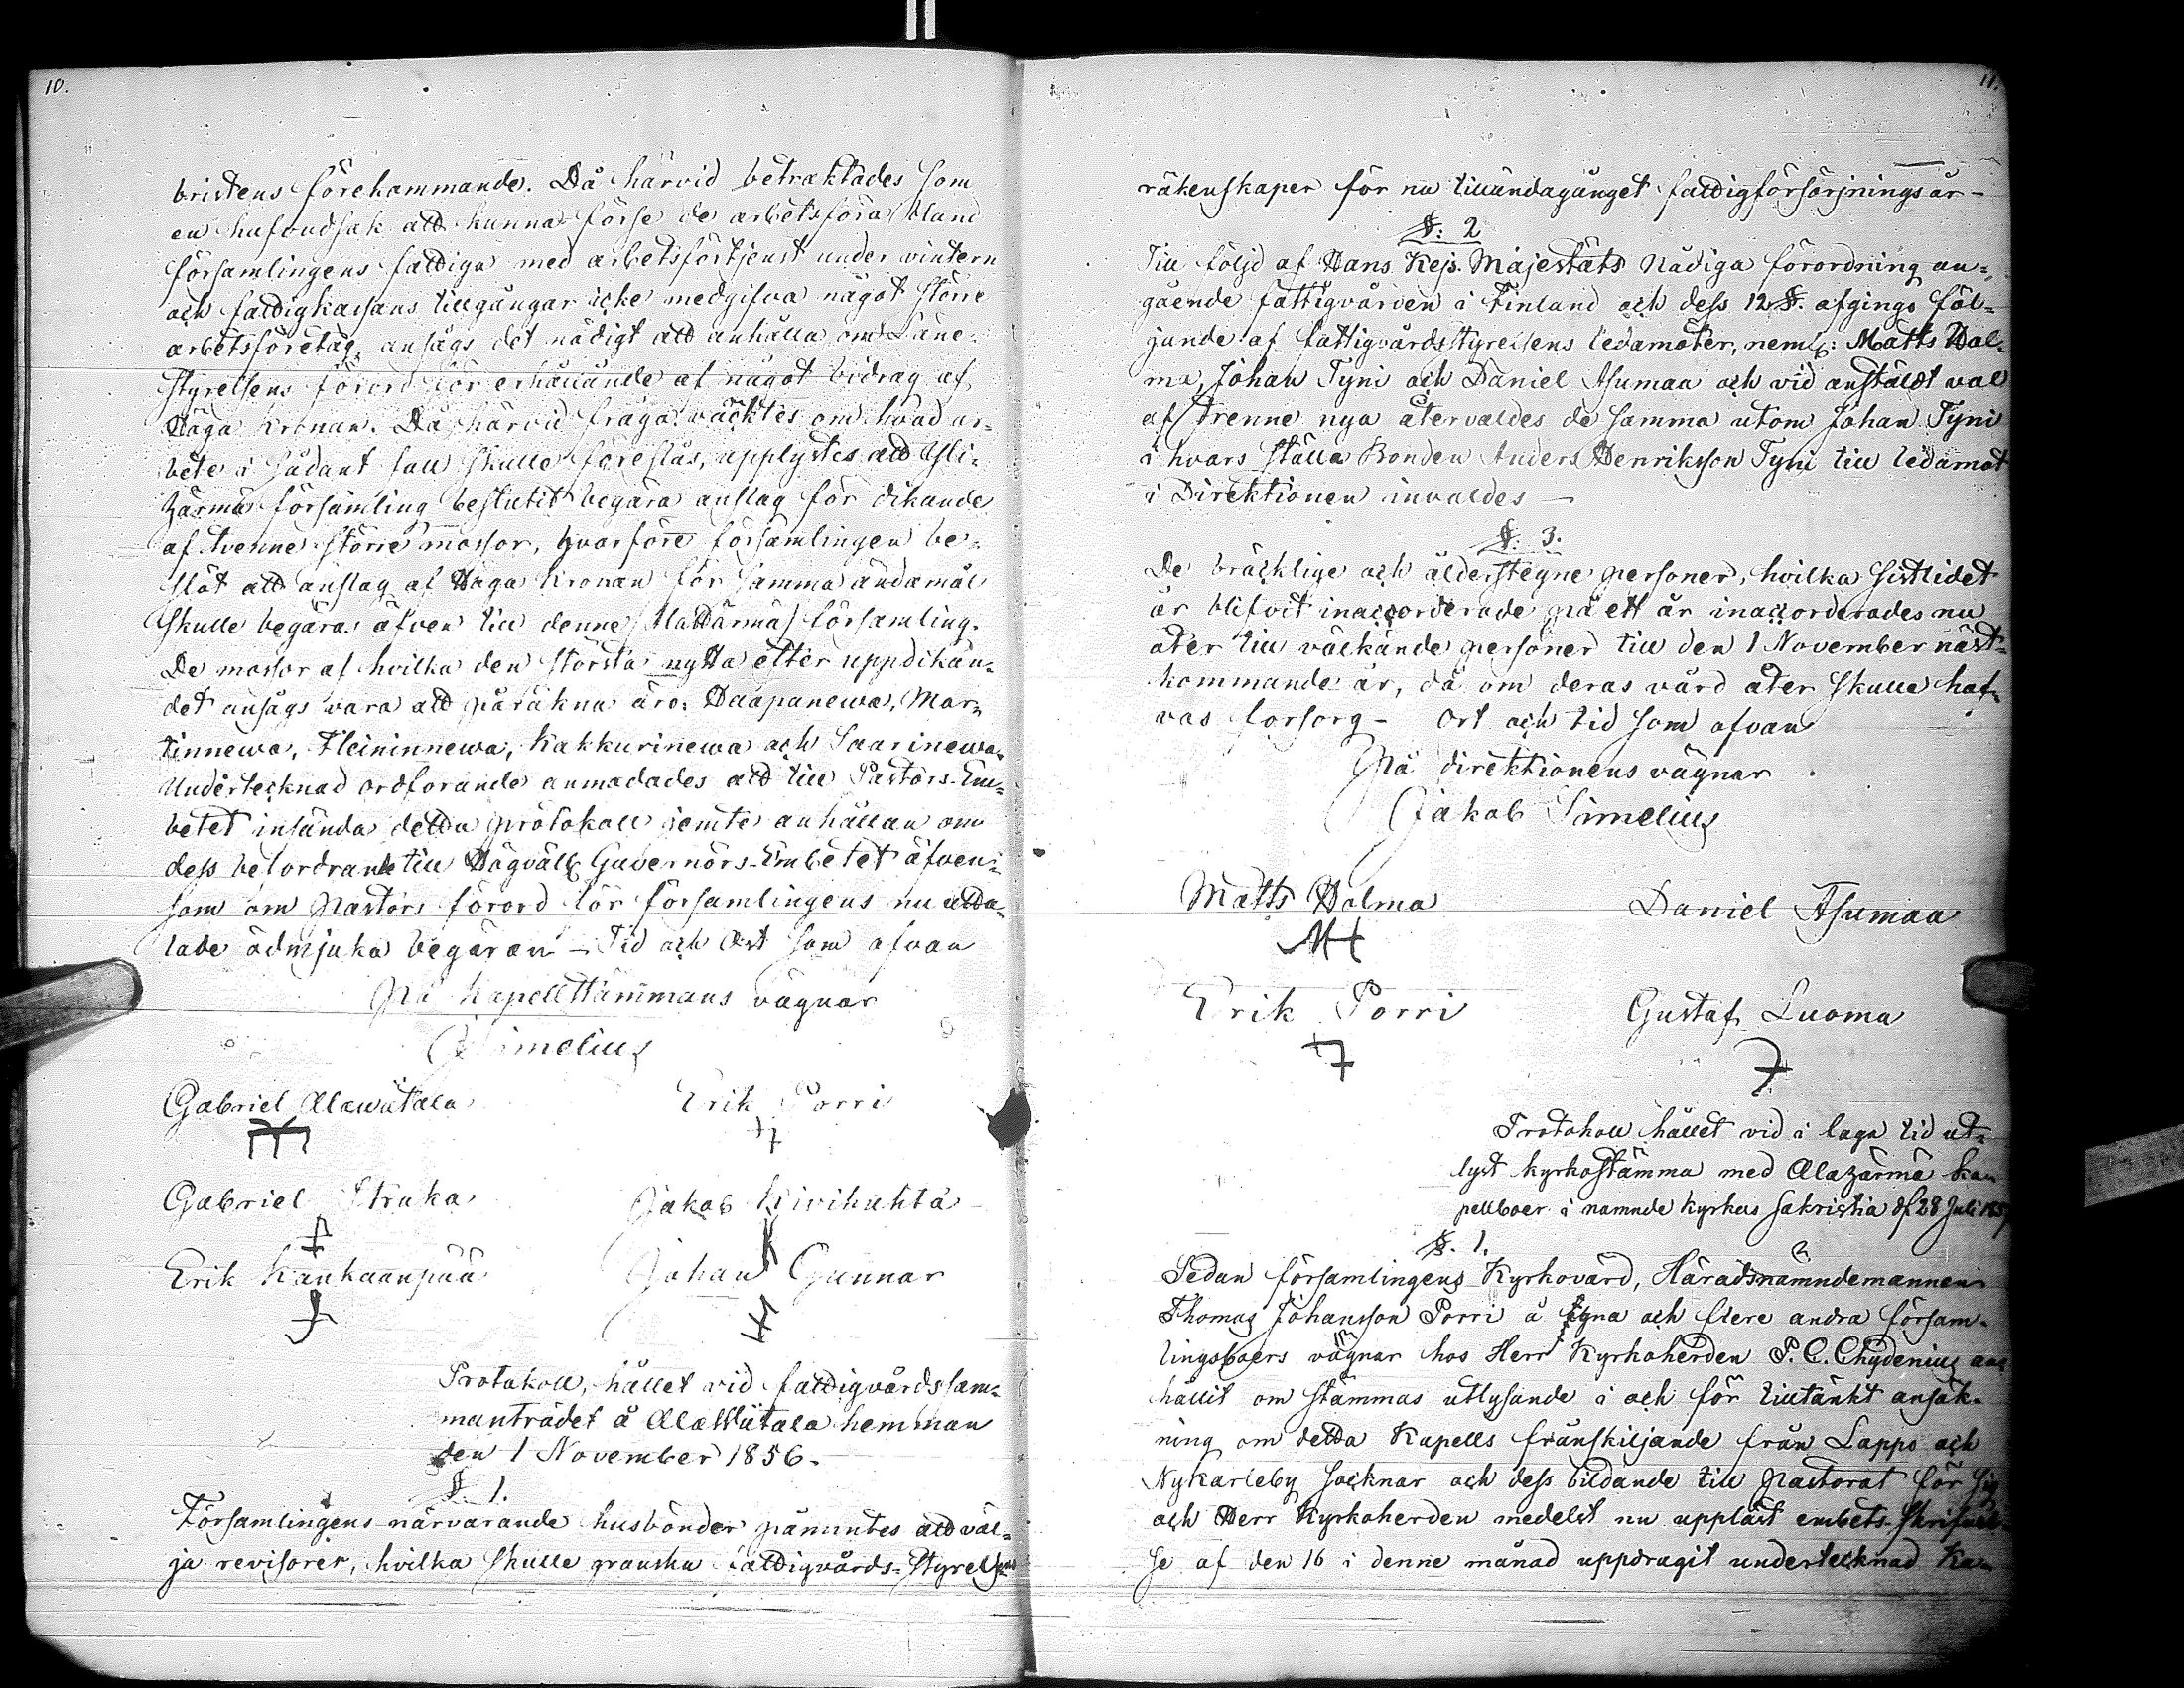 10.
bristens förekammande. Då härvid betraktades som
en hufvudsak att kunna förse de arbetsföra bland
församlingens fattiga med arbetsförtjenst under vintern
och fattigkassans tillgångar icke medgifva något större
arbetsföretag, ansågs det nödigt att anhålla om Läne-
styrelsens förord för erhållande af något bidrag af
Höga Kronan. Då härvid fråga väcktes om hvad ar-
bete i sådant fall skulle föreslås, upplystes att Yli-
härmä församling beslutit begära anslag för dikande
af tvenne större mossor, hvarföre församlingen be-
slöt att anslag af Höga Kronan för samma ändamål
skulle begäras äfven till denne församling.
De mossor af hvilka den största nytta efter uppdikan-
det ansågs vara att påräkna äro: Haapanewa, Mar-
tinnewa, Kakkurinewa och Saarinewa.
Undertecknad ordförande anmodades att till Pastors-Em-
betet insända detta protokoll jemte anhållan om
dess befordrande till Högvälb. Guvernörs-Embetet äfven-
som om Pastors förord för församlingens nu utta-
lade ödmjuka begäran – Tid och Ort som ofvan
På Kapellstämmans vägnar
J Simelius
Gabriel Alawiitala
Erik Porri
Gabriel
Jakob Kivihuhta
Erik Kankaanpää
Johan Gunnar
Protokoll, hållet vid fattigvårdssam-
manträdet å Alawiitala hemman
den 1 November 1856.
§. 1.
Församlingens närvarande husbönder påmintes att väl-
ja revisorer, hvilka skulle granska fattigvårds-Styrelsens
11.
räkenskaper för nu tilländagånget fattigförsörjningsår –
§: 2
Till följd af Hans Kejs. Majestäts Nådiga förordning an-
gående fattigvården i Finland och dess 12 §. afgingo föl-
jande af fattigvårdsstyrelsens ledamöter, neml: Matts Hol-
ma, Johan Tyni och Daniel Asumaa och vid anstäldt val
af trenne nya återvaldes de samma utom Johan Tyni
i hvars ställe Bonden Anders Henriksson Tyni till ledamot
i Direktionen invaldes –
§: 3.
De bräcklige och ålderstegne personer, hvilka sistlidet
år blifvit inaccorderade på ett år inaccorderades nu
åter till välkände personer till den 1 November näst-
kommande år, då om deras vård åter skulle haf-
vas försorg – Ort och tid som ofvan
På direktionens vägnar
Jakob Simelius
Matts Holma
Daniel Asumaa
Erik Porri
Gustaf Luoma
Protokoll hållet vid i laga tid ut-
lyst kyrkostämma med Alahärmä Ka-
pellboer i namnde kyrkas sakristia d. 28 Juli 1857
§. 1.
Sedan församlingens Kyrkovärd, Häradsnämndemannen
Thomas Johansson Porri å egna och flere andra försam-
lingsboers vägnar hos Herr Kyrkoherden P. C. Chydenius an-
hållit om stämmas utlysande i och för tilltänkt ansök-
ning om detta Kapells frånskiljande från Lappo och
Nykarleby socknar och dess bildande till Pastorat för sig
och Herr Kyrkoherden medelst nu uppläst embets-Skrifvel-
se af den 16 i denne månad uppdragit undertecknad Ka-